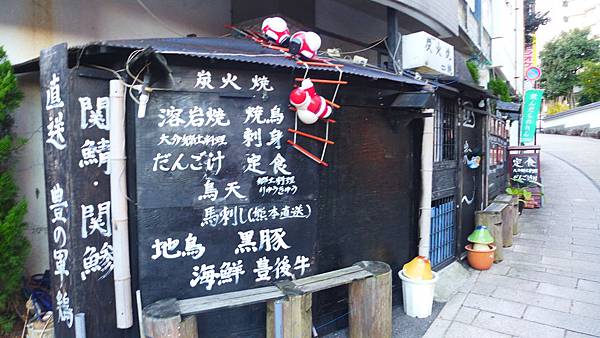 直送
関鯖・関鰺
豊の軍鶏
炭火焼
溶岩焼 焼鳥
大分郷土料理 刺身
だんご汁 定食
鳥天 郷土料理
りゅうきゅう
馬刺し(熊本直送)
地鳥 黒豚
海鮮 豊後牛
炭火焼
定食